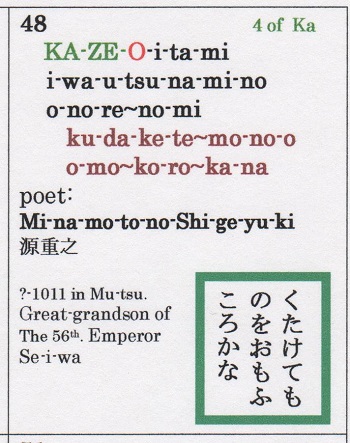 48
4 of Ka
KA-ZE-O-i-ta-mi
i-wa-u-tsu-na-mi-no
o-no-re~no-mi
ku-da-ke-te~mo-no-o
o-mo~ko-ro~ka-na
poet:
Mi-na-mo-to-no-Shi-ge-yu-ki
源重之
?-1011 in Mu-tsu.
Great-grandson of
The 56th. Emperor
Se-i-wa
くたけても
のをおもふ
ころかな